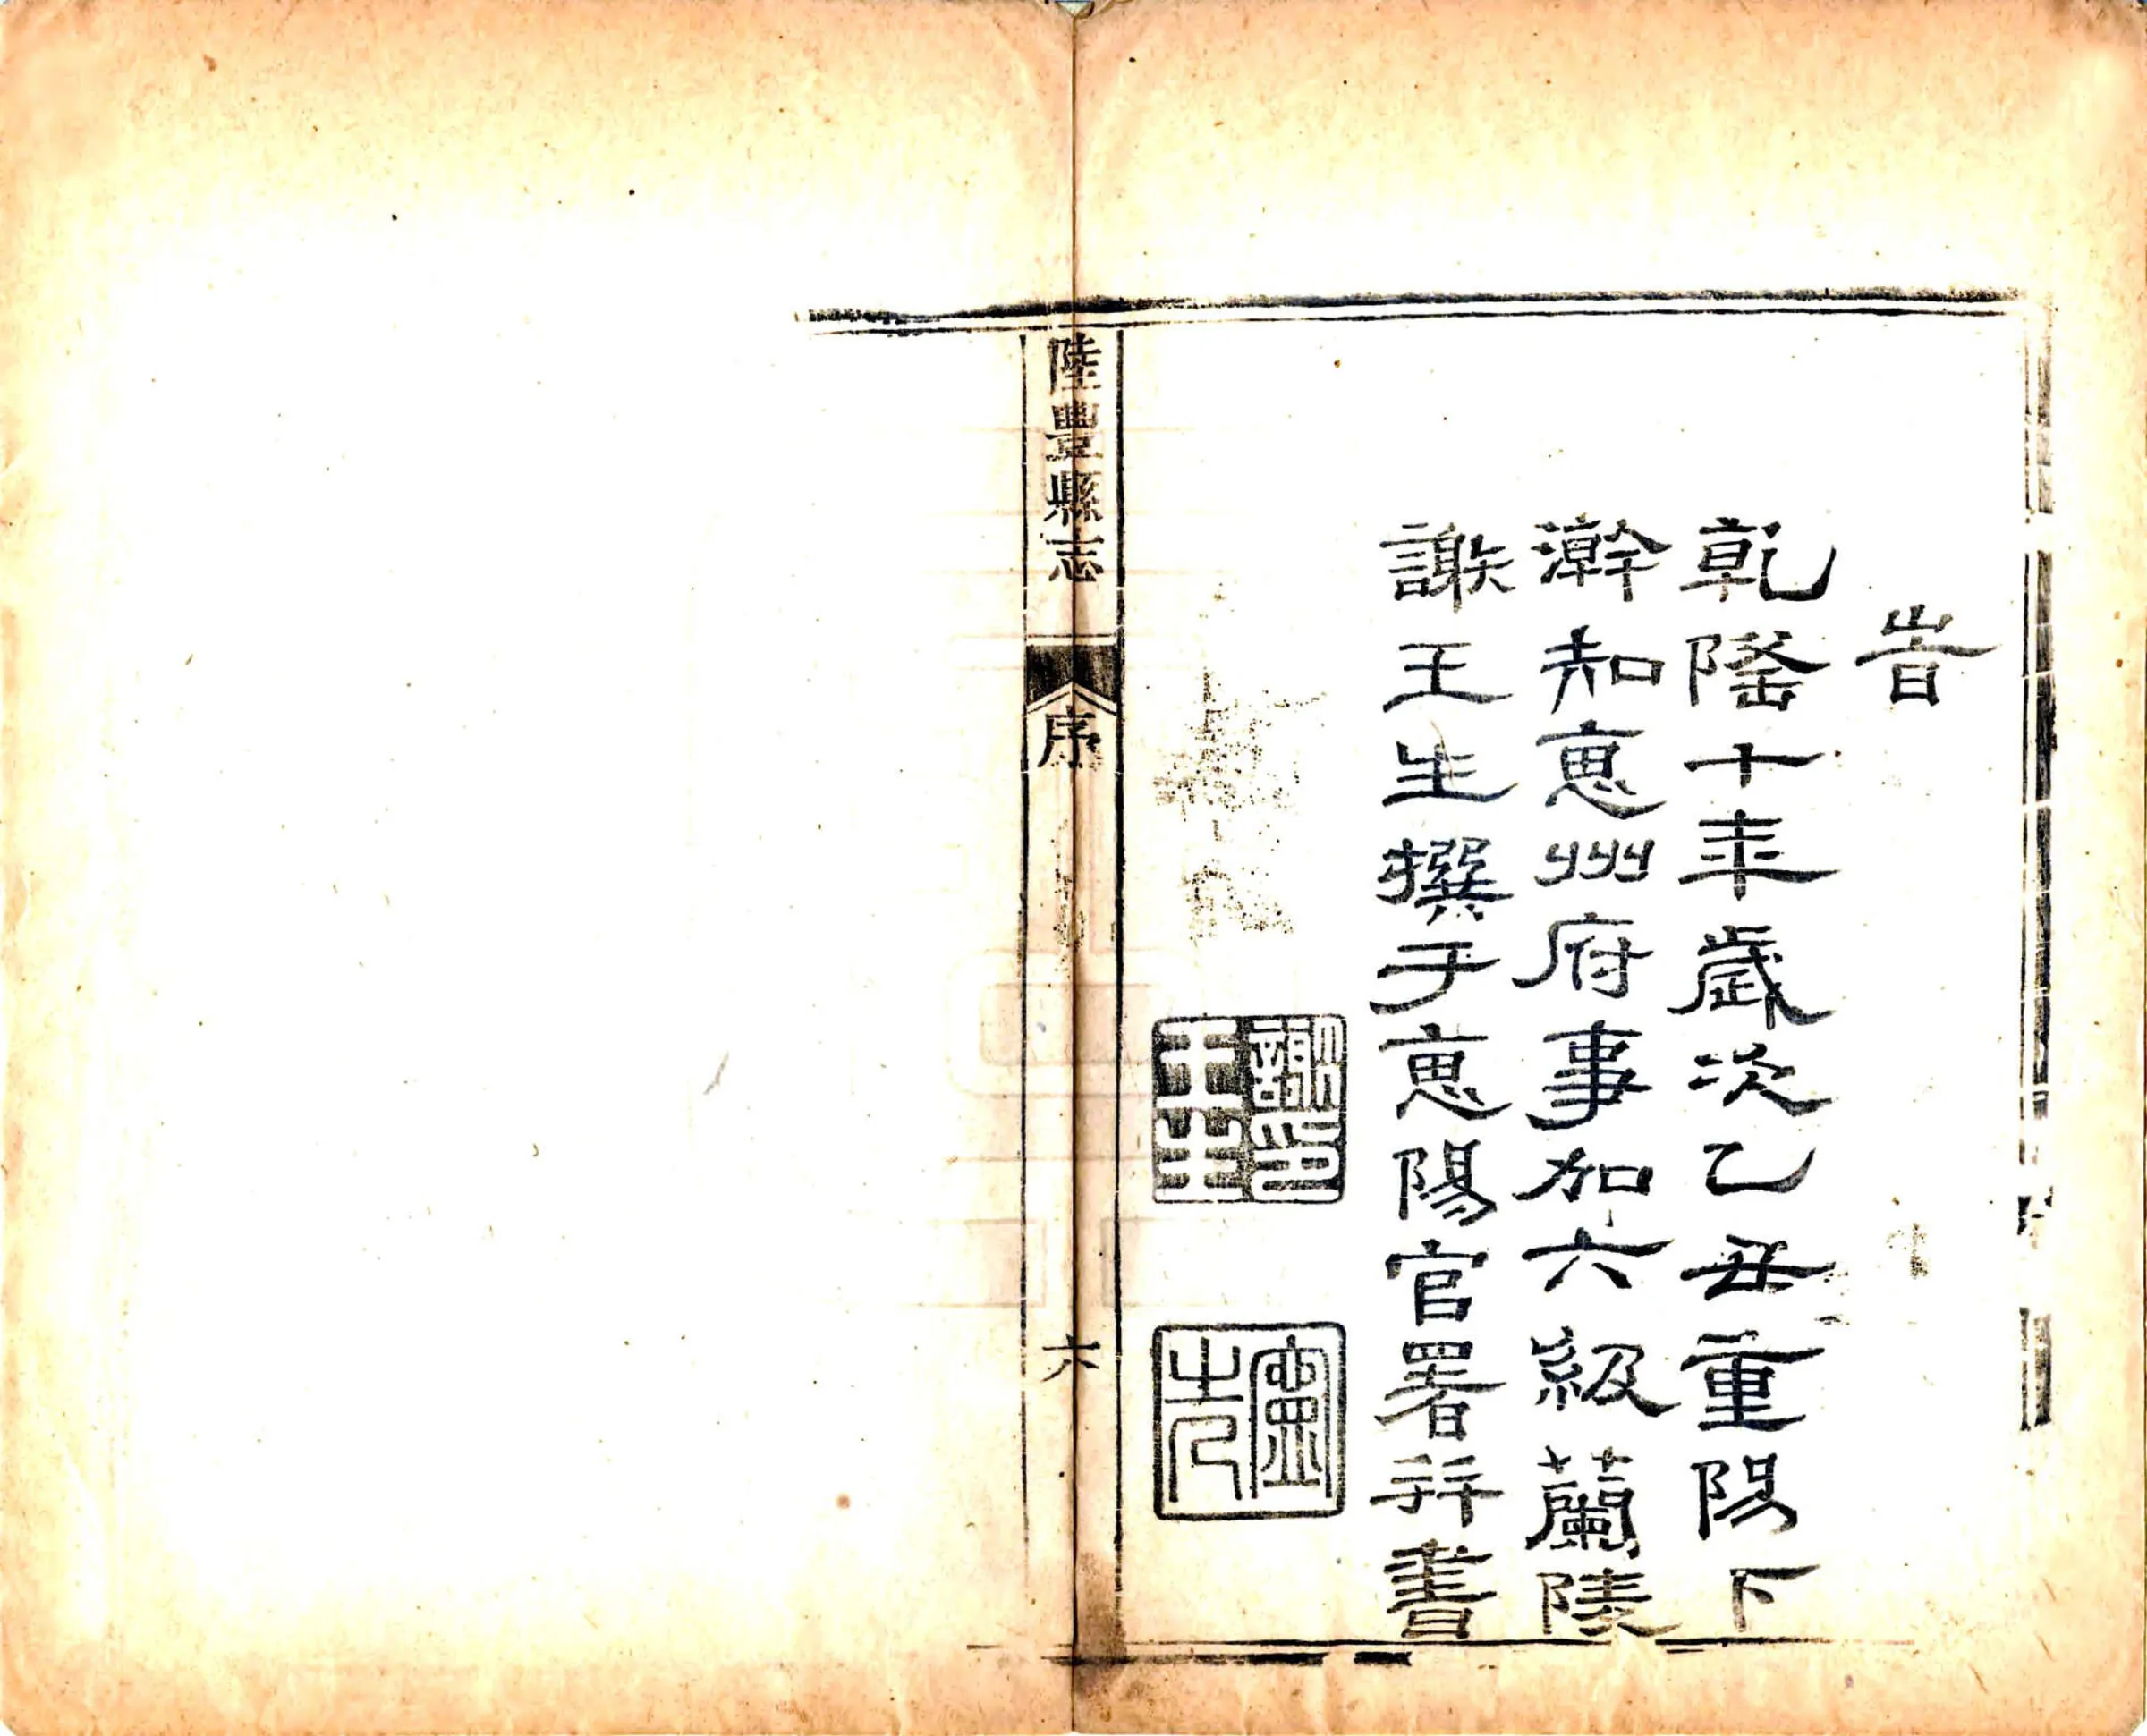 旹
乾隆十年歲次乙丑重陽下
澣知惠州府事加六級蘭陵
謝王生撰于惠陽官署并書
謝印
王生
陸豐縣志
序
六